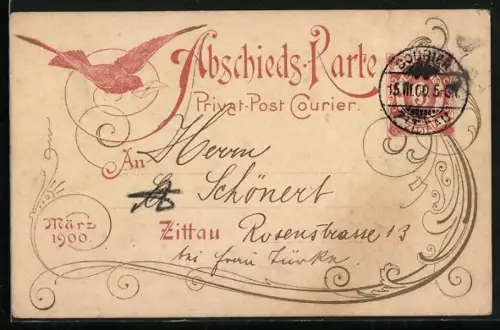 Abschieds-Karte
Privat-Post Courier.
COURIER
15.III.00.5-6N.
ZITTAU
An Herrn
Schönert
Zittau Rosenstrasse 13
bei Frau Türke.
März
1900.